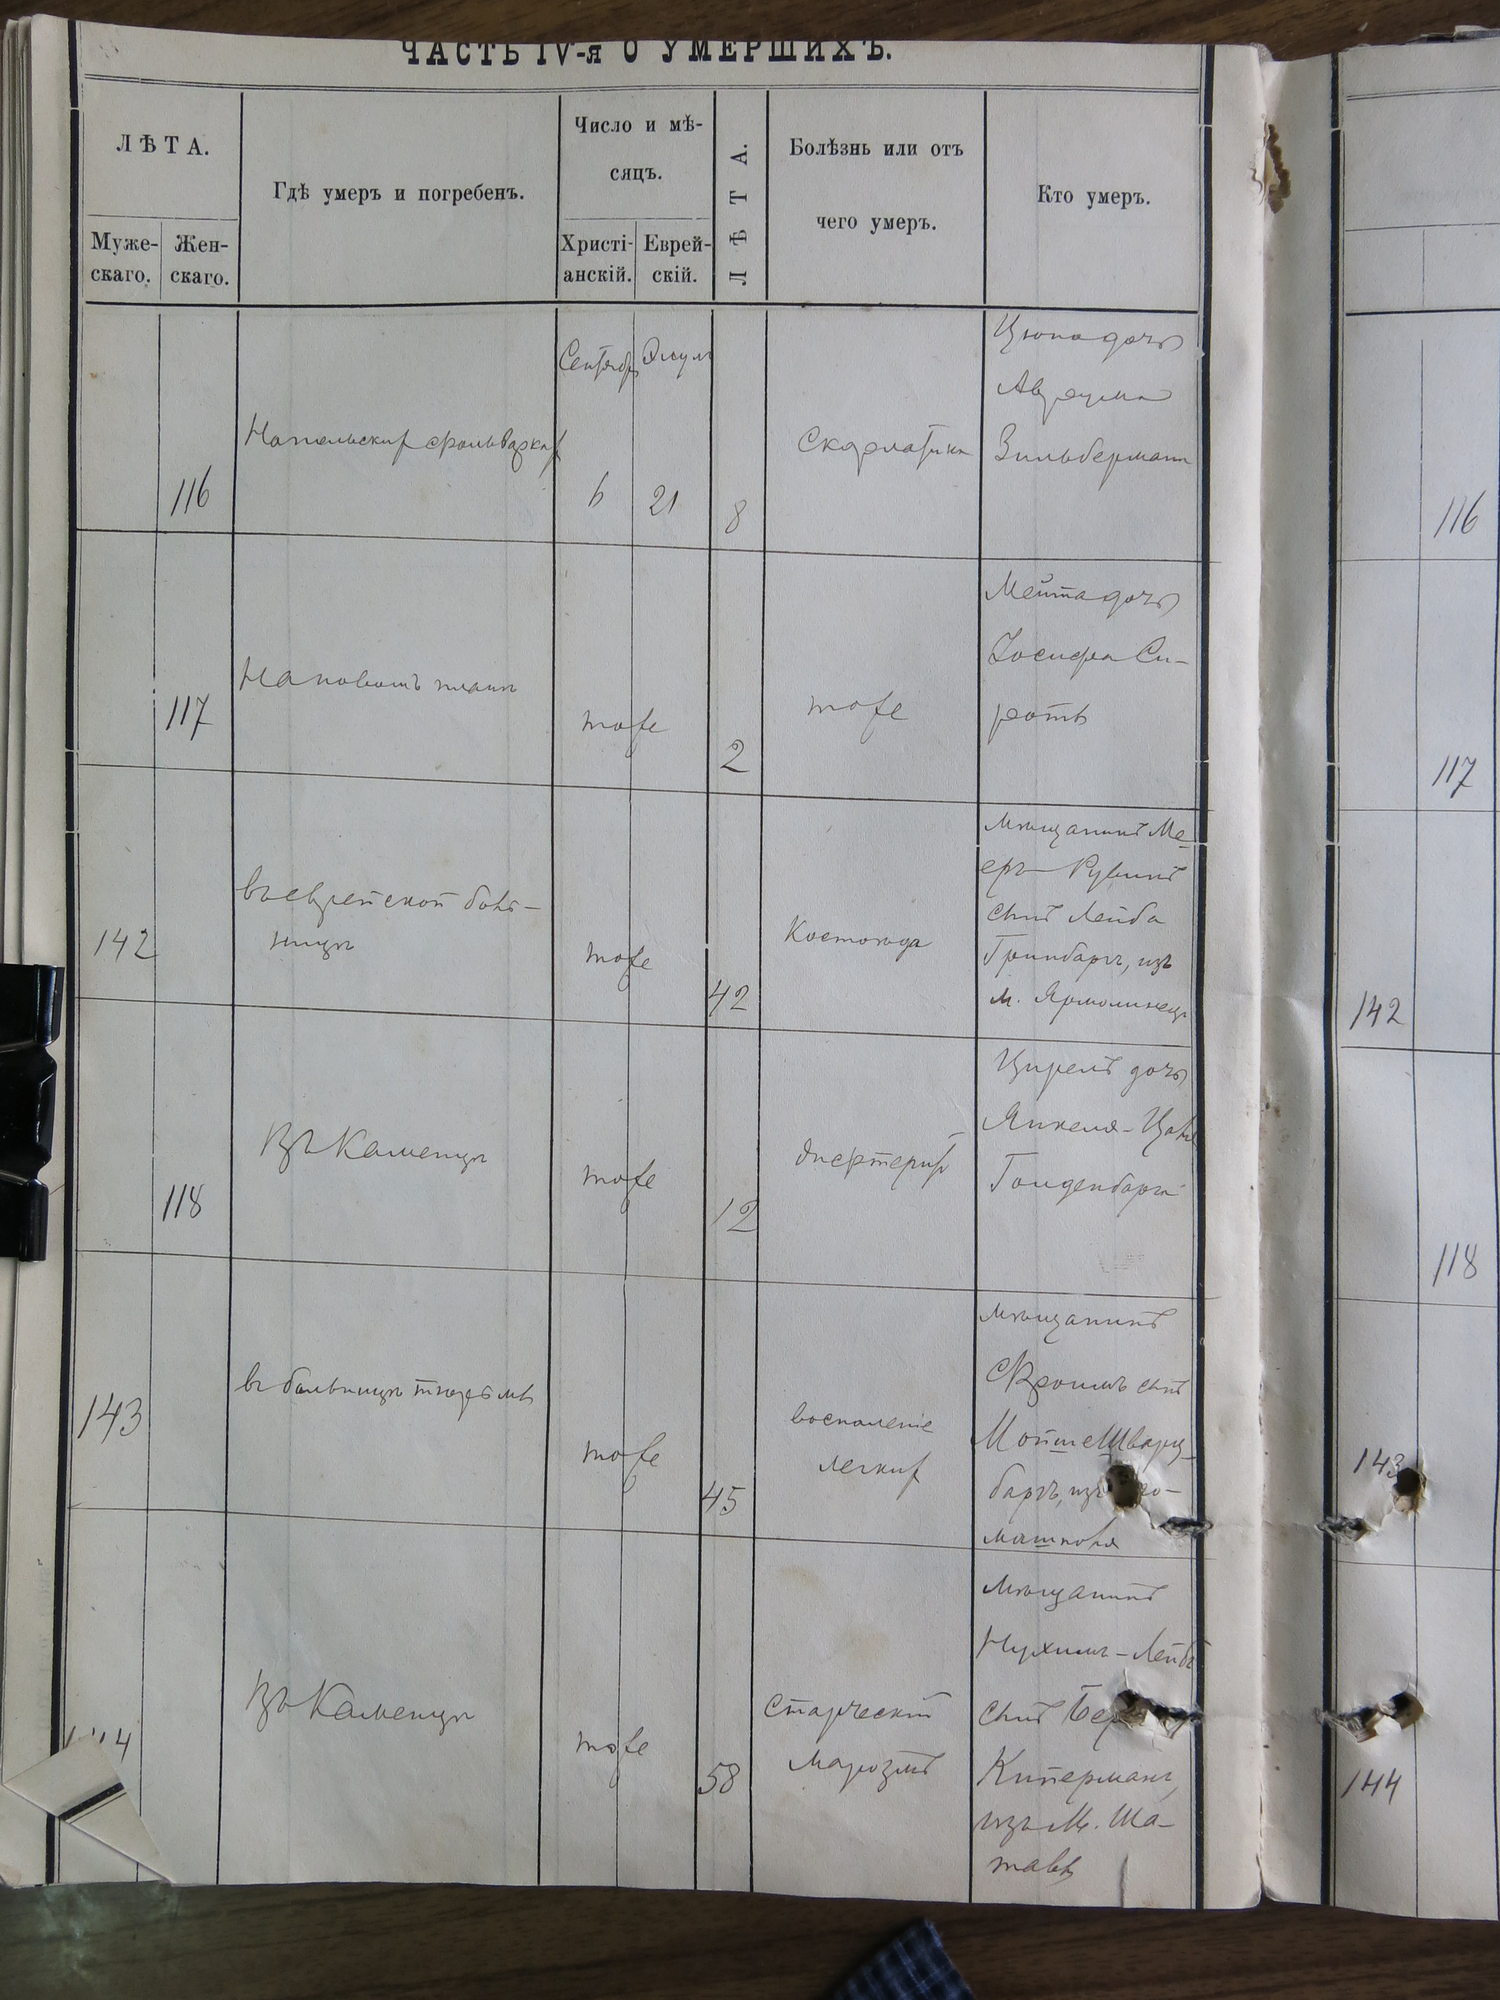 ЧАСТЬ IV-я О УМЕРШИХЪ.
ЛѢТА.
Мужескаго.
Женскаго.
Гдѣ умеръ и погребенъ.
Число и мѣ-
сяцъ.
Христі-
анскій.
Еврей-
скій.
ЛѢТА.
Болѣзнь или отъ
чего умеръ.
Кто умеръ.
116
фольварках
Сентябр
Элул
6
21
8
Скарлатина
Цюпа дочь
Авраума
Зильберман
116
117
На новомъ планѣ
тоже
2
тоже
Мейта дочь
Іосифа Си-
рота
117
142
въ еврейской боль-
ницѣ
тоже
42
Костоѣда
мѣщанинъ Ме-
еръ Рувинъ
сынъ Лейба
Гринбаргъ, изъ
м. Ярмолинецъ
142
118
Въ Каменцѣ
тоже
12
дифтеритъ
Цирель дочь
Янкеля-
Гольденбарга
118
143
въ больницѣ тюрьмы
тоже
45
воспаленіе
легких
мѣщанинъ
Сроимъ сынъ
Мойше Шварц-
баргъ, изъ
машковъ
143
Въ Каменцѣ
тоже
58
старческій
маразмъ
мѣщанинъ
Нухимъ-Лейбъ
сынъ
Киперманъ,
изъ м. Ша-
тава
144